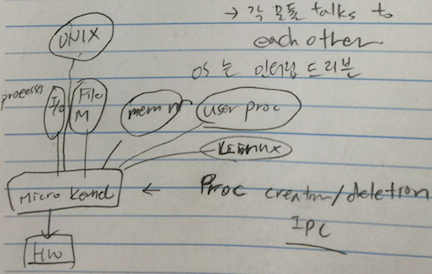 → 각 모듈 talks to
each other
OS 는 인터럽 드리븐
UNIX
process
I/O
File
M
mem m
user proc
Micro Kernel
← Proc creation/deletion
IPC
HW